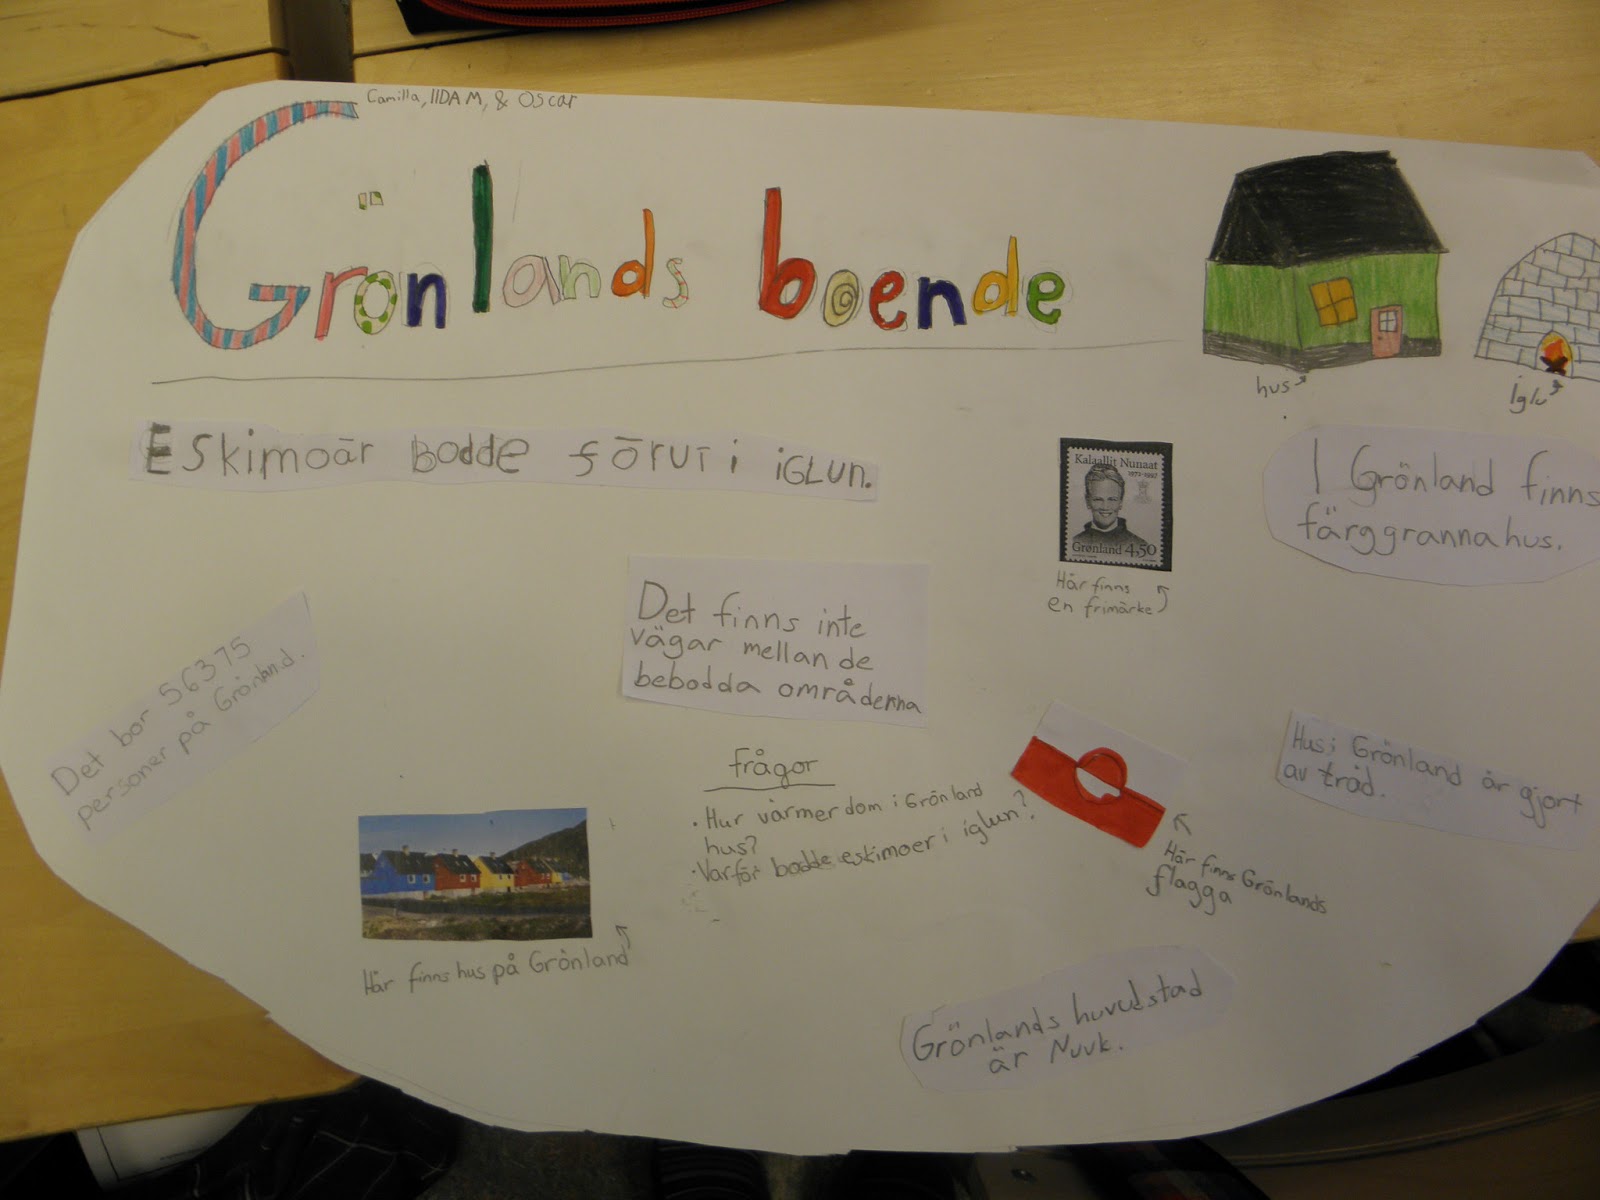 Camilla, IIDA M, & Oscar
Grönlands boende
hus
iglu
Eskimoär bodde förut i iGLUn.
Kalaallit Nunaat
1972-1997
Grønland 4,50
Här finns
en frimärke
I Grönland finns
färggrannahus.
Det finns inte
vägar mellan de
bebodda områdenna
Det bor 56375
personer på Grönland.
frågor
• Hur värmer dom i Grönland
hus?
• Varför bodde eskimoer i iglun?
Här finns Grönlands
flagga
Hus i Grönland är gjort
av träd.
Här finns hus på Grönland
Grönlands huvudstad
är Nuuk.